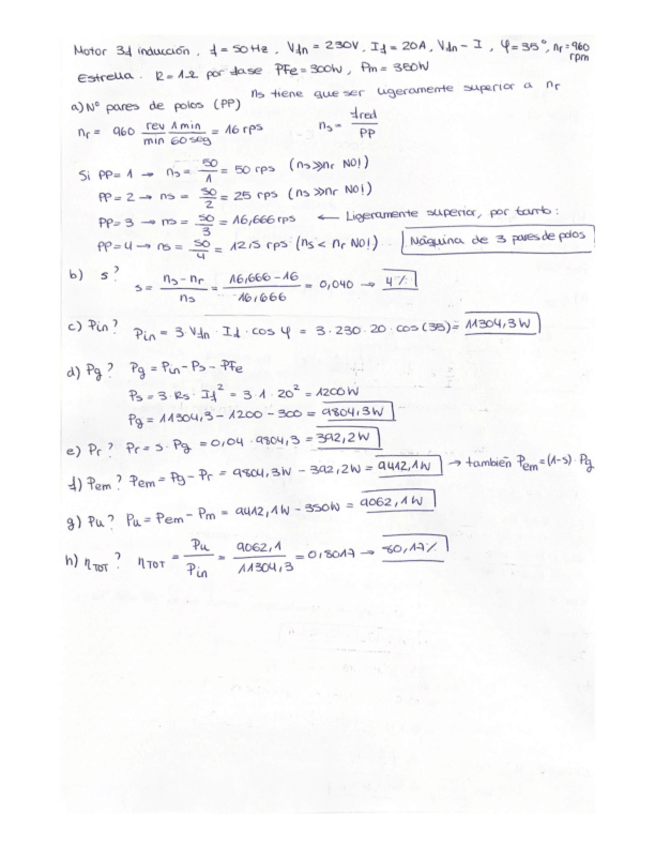 Motor 3f inducción. f = 50 Hz, Vfn = 230V, If = 20A, Vfn - I, φ = 35°, nr = 960 rpm
Estrella. R = 1Ω por fase PFe = 300W, Pm = 350W
ns tiene que ser ligeramente superior a nr
a) Nº pares de polos (PP)
nr = 960 rev/min 1 min/60 seg = 16 rps   ns = fred/PP
Si PP = 1 → ns = 50/1 = 50 rps (ns >> nr NO!)
PP = 2 → ns = 50/2 = 25 rps (ns >> nr NO!)
PP = 3 → ns = 50/3 = 16,666 rps ← Ligeramente superior, por tanto:
PP = 4 → ns = 50/4 = 12,5 rps (ns < nr NO!) Máquina de 3 pares de polos
b) s? s = (ns - nr)/ns = (16,666 - 16)/16,666 = 0,040 → 4%
c) Pin? Pin = 3 · Vfn · If · cos φ = 3 · 230 · 20 · cos(35) = 11304,3 W
d) Pg? Pg = Pin - Ps - PFe
Ps = 3 · Rs · If² = 3 · 1 · 20² = 1200 W
Pg = 11304,3 - 1200 - 300 = 9804,3 W
e) Pr? Pr = s · Pg = 0,04 · 9804,3 = 392,2 W
f) Pem? Pem = Pg - Pr = 9804,3W - 392,2W = 9412,1W → también Pem = (1-s) · Pg
g) Pu? Pu = Pem - Pm = 9412,1W - 350W = 9062,1 W
h) ηTOT? ηTOT = Pu/Pin = 9062,1/11304,3 = 0,8017 → 80,17%